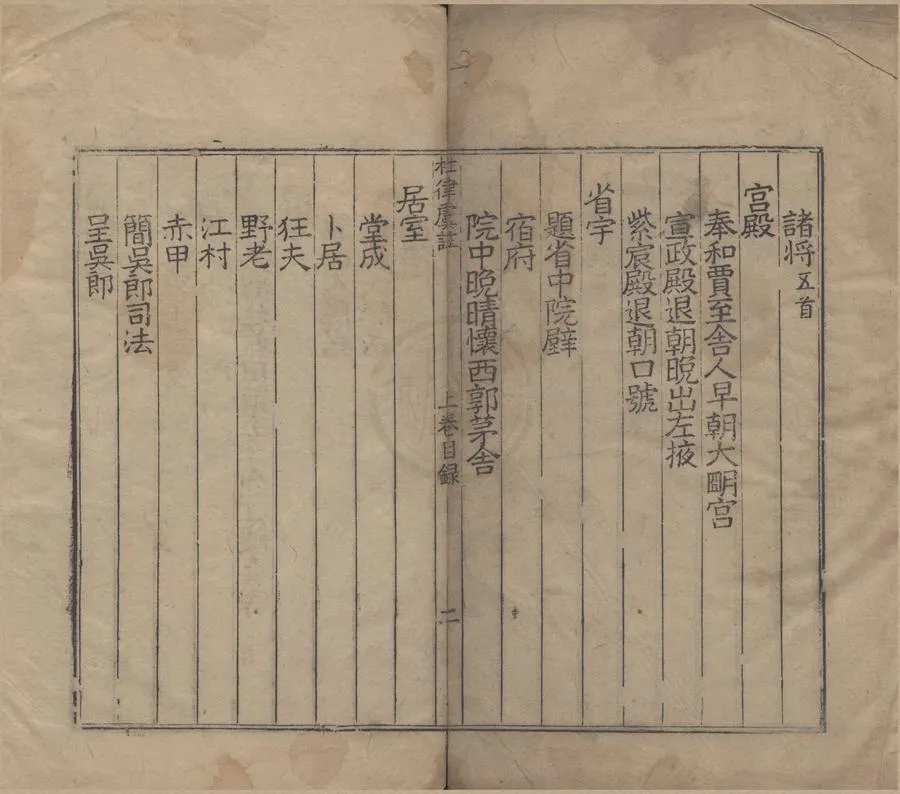 諸將五首
宫殿
奉和賈至舎人早朝大明宫
宣政殿退朝晚出左掖
紫宸殿退朝口號
省宇
題省中院壁
宿府
院中晚晴懷西郭茅舎
杜律虞註 上巻目録 二
居室
堂成
卜居
狂夫
野老
江村
赤甲
簡吳郎司法
呈吳郎